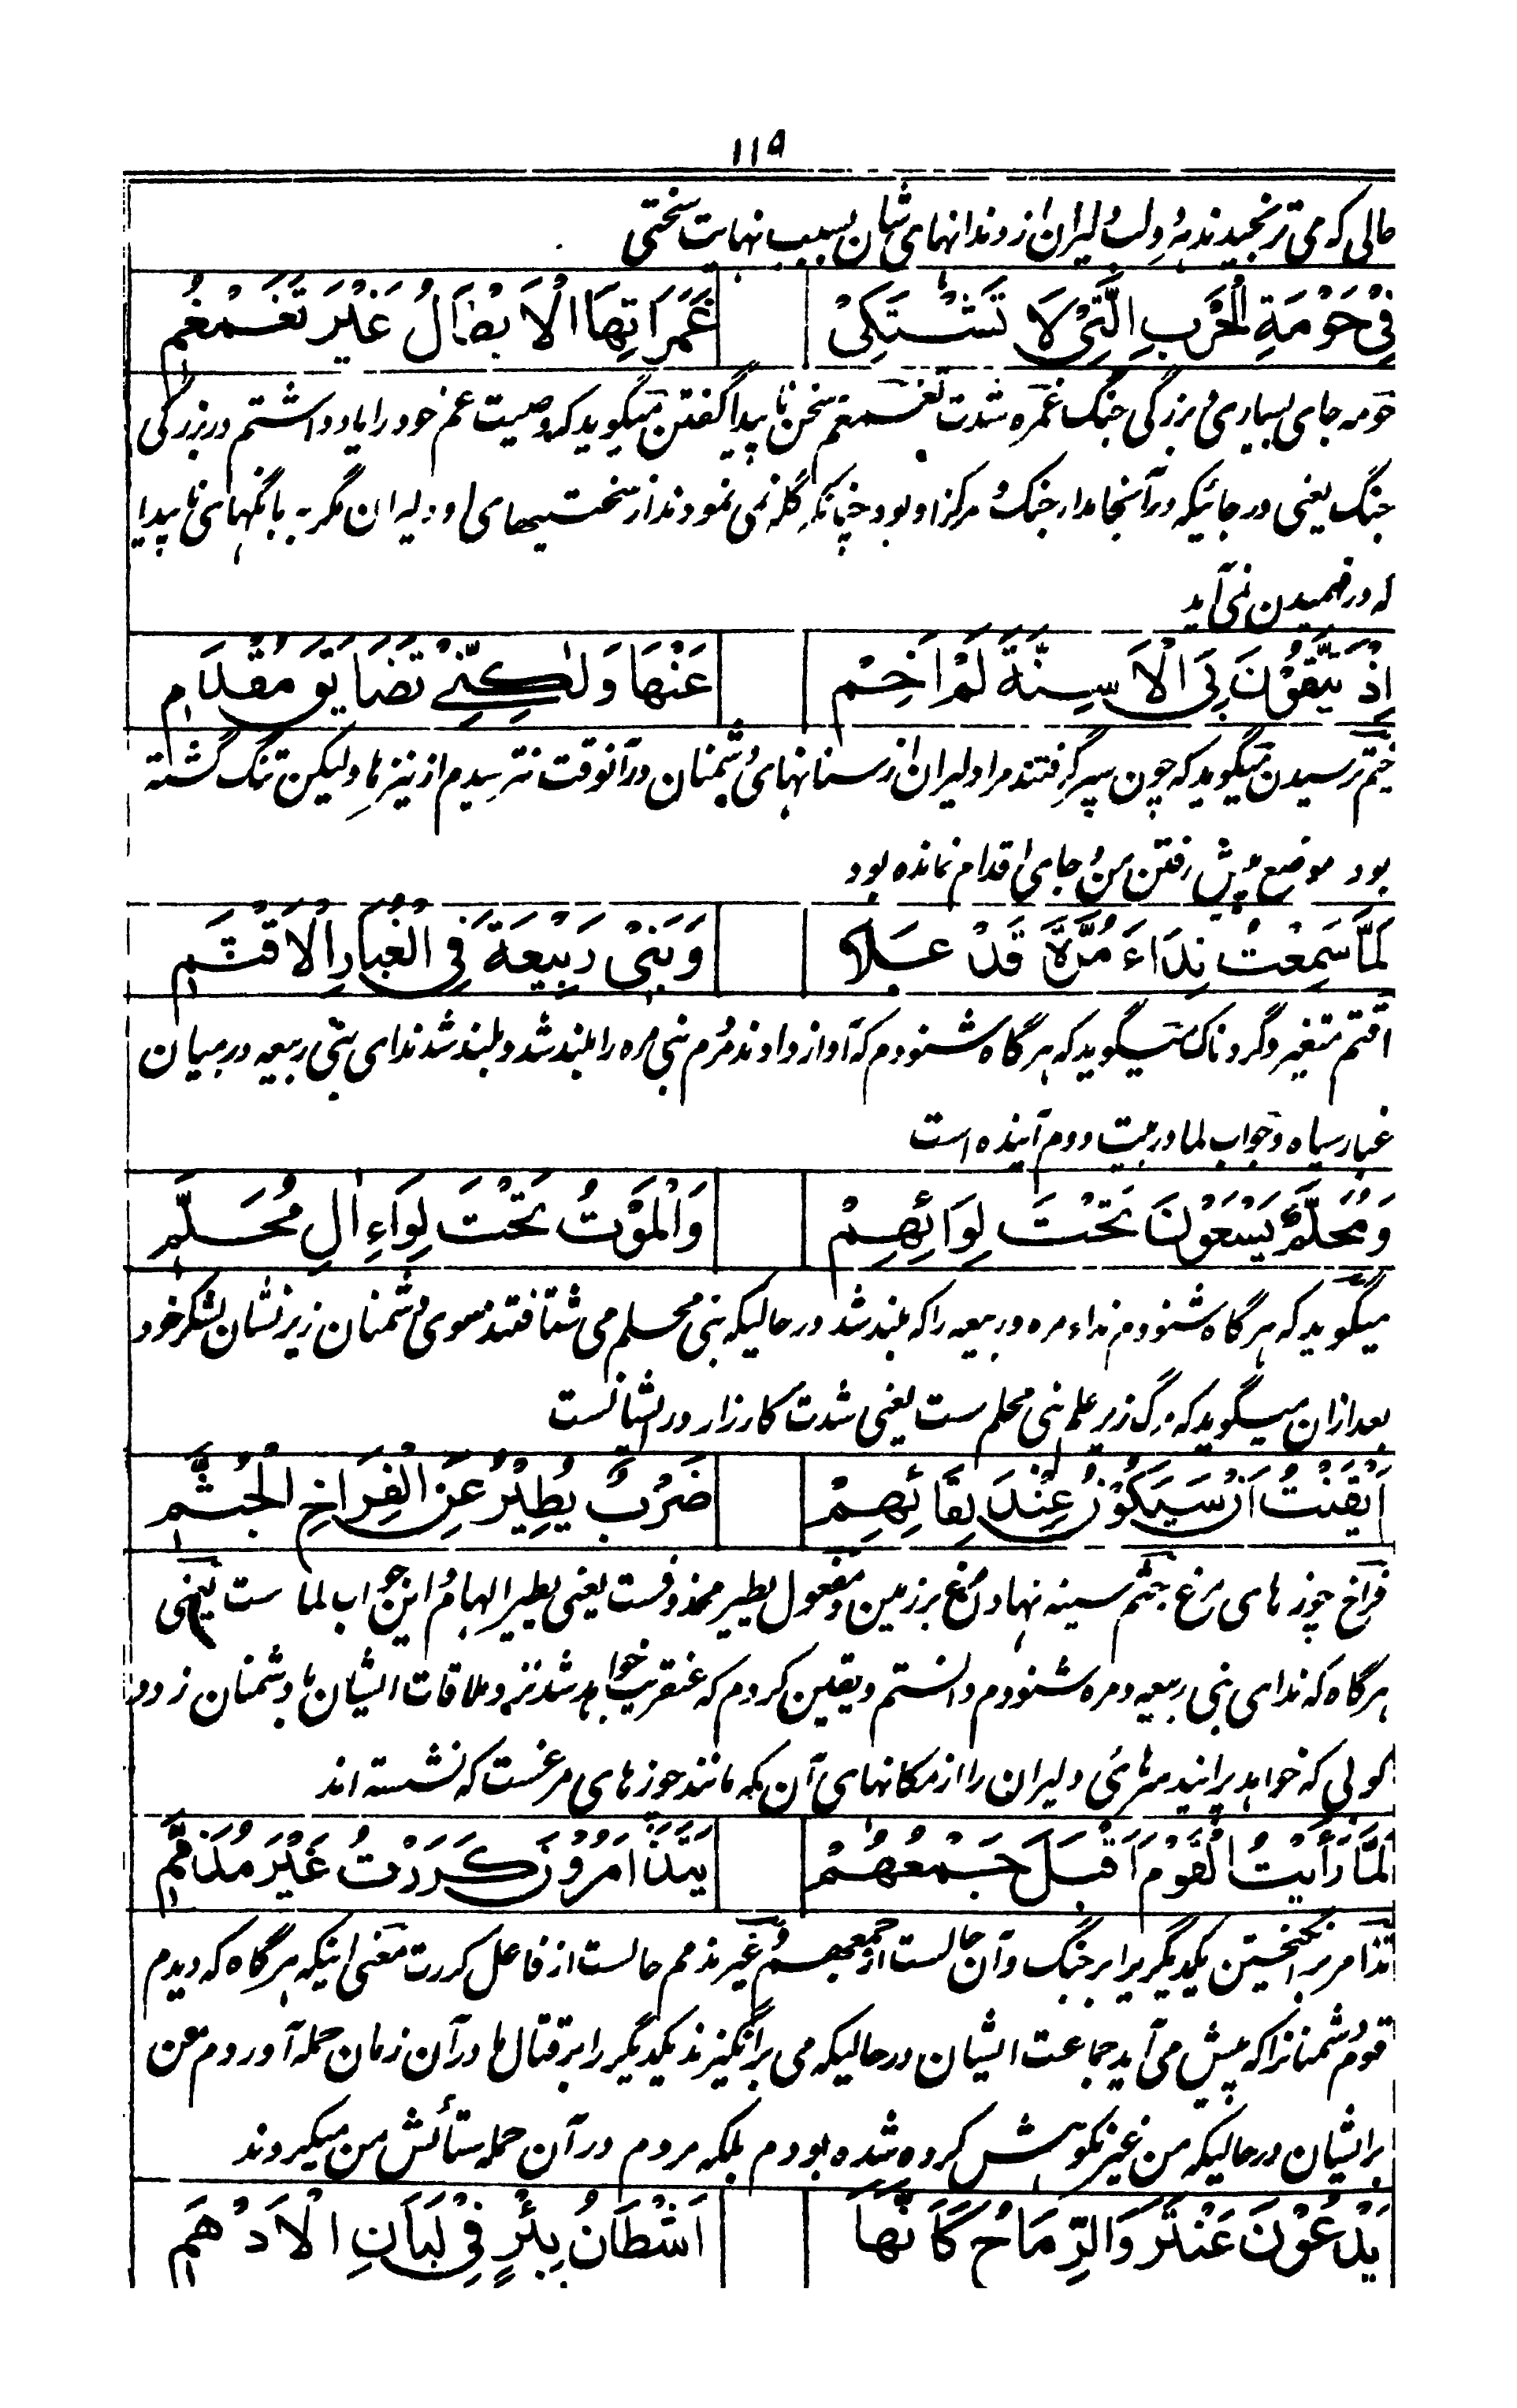 ۱۱۹
حالی که می ترنجیدند هر دو لب دلیران از دندانهای شان بسبب نهایت سختی
فِيْ حَوْمَةِ الْحَرْبِ الَّتِيْ لَا تَشْتَكِيْ غَمَرَاتِهَا الْاَبْطَالُ غَيْرَ تَغَمْغُمٖ
حومه جای بسیاری و بزرگی جنگ غمره شدت تغمغم سخن ناپیدا گفتن میگوید که وصیت عم خود را یاد داشتم در بزرگی
جنگ یعنی در جائیکه در آنجا مدار جنگ و مرکز او بود چنانکه گله نمی نمودند از سختیهای او دلیران مگر به بانگهای ناپیدا
که در فهمیدن نمی آید
اِذْ يَتَّقُوْنَ بِيَ الْاَسِنَّةَ لَمْ اَخِمْ عَنْهَا وَلٰكِنِّيْ تَضَايَقَ مُقْدَامٖ
خیم ترسیدن میگوید که چون سپر گرفتند مرا دلیران از سنانهای دشمنان در آنوقت نترسیدم از نیزها ولیکن تنگ گشته
بود موضع پیش رفتن من و جای اقدام نمانده بود
لَمَّا سَمِعْتُ نِدَاءَ مُرَّةَ قَدْ عَلَا وَبَنِيْ رَبِيْعَةَ فِي الْغُبَارِ الْاَقْتَمٖ
اقتم متغیر و گردناک میگوید که هرگاه شنودم که آواز دادند مردم بنی مره را بلند شد و بلند شد ندای بنی ربیعه در میان
غبار سیاه و جواب لما در بیت دوم آینده است
وَمُحَلَّمٌ يَسْعَوْنَ تَحْتَ لِوَائِهِمْ وَالْمَوْتُ تَحْتَ لِوَاءِ اٰلِ مُحَلَّمٖ
میگوید که هرگاه شنودم نداء مره و ربیعه را که بلند شد در حالیکه بنی محلم می شتافتند سوی دشمنان زیر نشان لشکر خود
بعد ازان میگوید که مرگ زیر علم بنی محلم ست یعنی شدت کارزار در ایشانست
اَيْقَنْتُ اَنْ سَيَكُوْنُ عِنْدَ لِقَائِهِمْ ضَرْبٌ يُطِيْرُ عَنِ الْفِرَاخِ الْجُثَّمٖ
فراخ چوزهای مرغ جثم سینه نهادن مرغ بر زمین و مفعول یطیر محذوفست یعنی یطیر الهام و این جواب لما ست یعنی
هرگاه که ندای بنی ربیعه و مره شنودم دانستم و یقین کردم که عنقریب خواهد شد نزد ملاقات ایشان با دشمنان زدو
کوبی که خواهد پرانید سرهائی دلیران را از مکانهای آن که مانند چوزهای مرغست که نشسته اند
لَمَّا رَأَيْتُ الْقَوْمَ اَقْبَلَ جَمْعُهُمْ يَتَذَامَرُوْنَ كَرَرْتُ غَيْرَ مُذَمَّمٖ
تذامر بر انگیختن یکدیگر برابر جنگ و آن حالست از جمعهم و غیر مذمم حالست از فاعل کررت معنی اینکه هرگاه که دیدم
قوم دشمنانرا که پیش می آید جماعت ایشان در حالیکه می برانگیزند یکدیگر را بر قتال ما در آن زمان حمله آوردم من
بر ایشان در حالیکه من غیر نکوهش کرده شده بودم بلکه مردم در آن حمله ستائش من میکردند
يَدْعُوْنَ عَنْتَرَ وَالرِّمَاحُ كَاَنَّهَا اَشْطَانُ بِئْرٍ فِيْ لَبَانِ الْاَدْهَمٖ